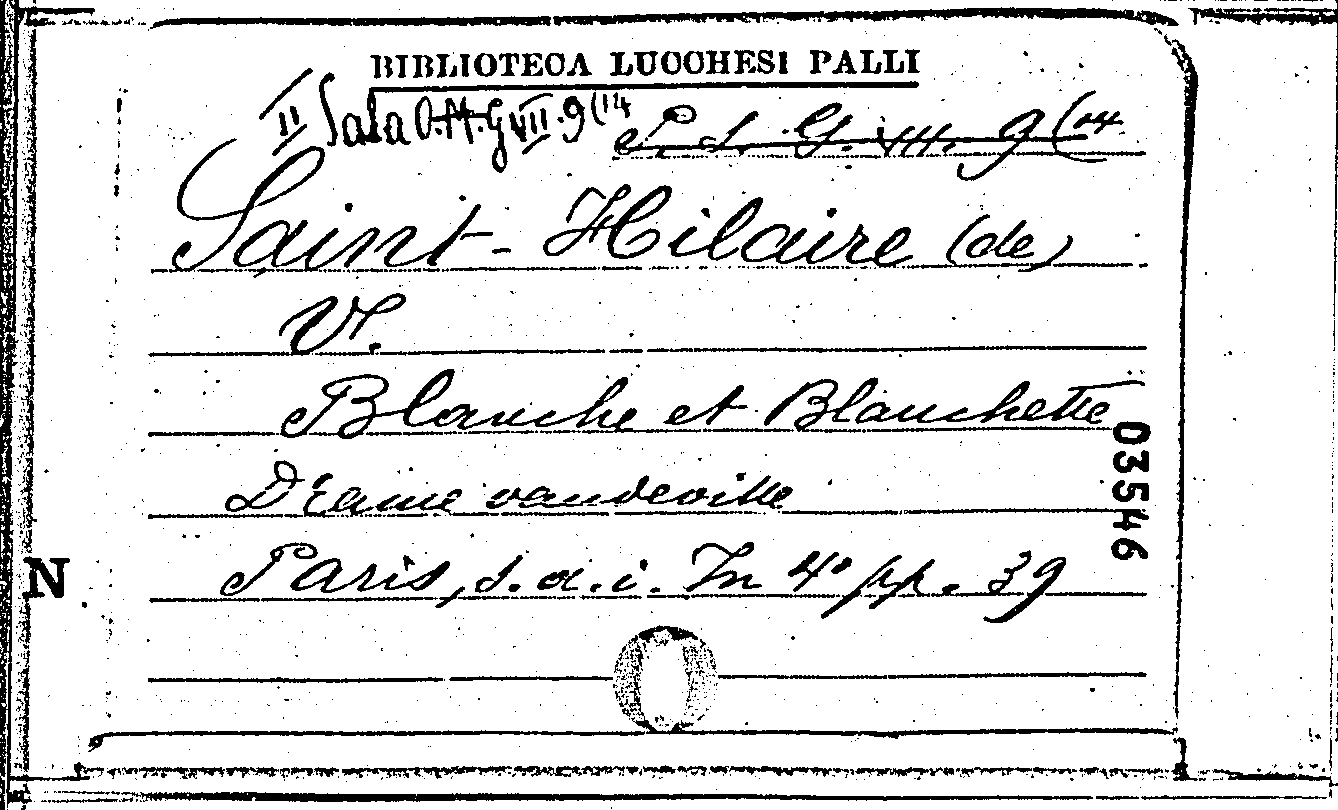 BIBLIOTECA LUCCHESI PALLI
II Sala O.M.G VII.9(14
P. S. G. VII. 9(14
Saint-Hilaire (de)
V.
Blanche et Blanchette
Drame vaudeville
Paris, s.a.i. In 4° pp. 39
03546
N